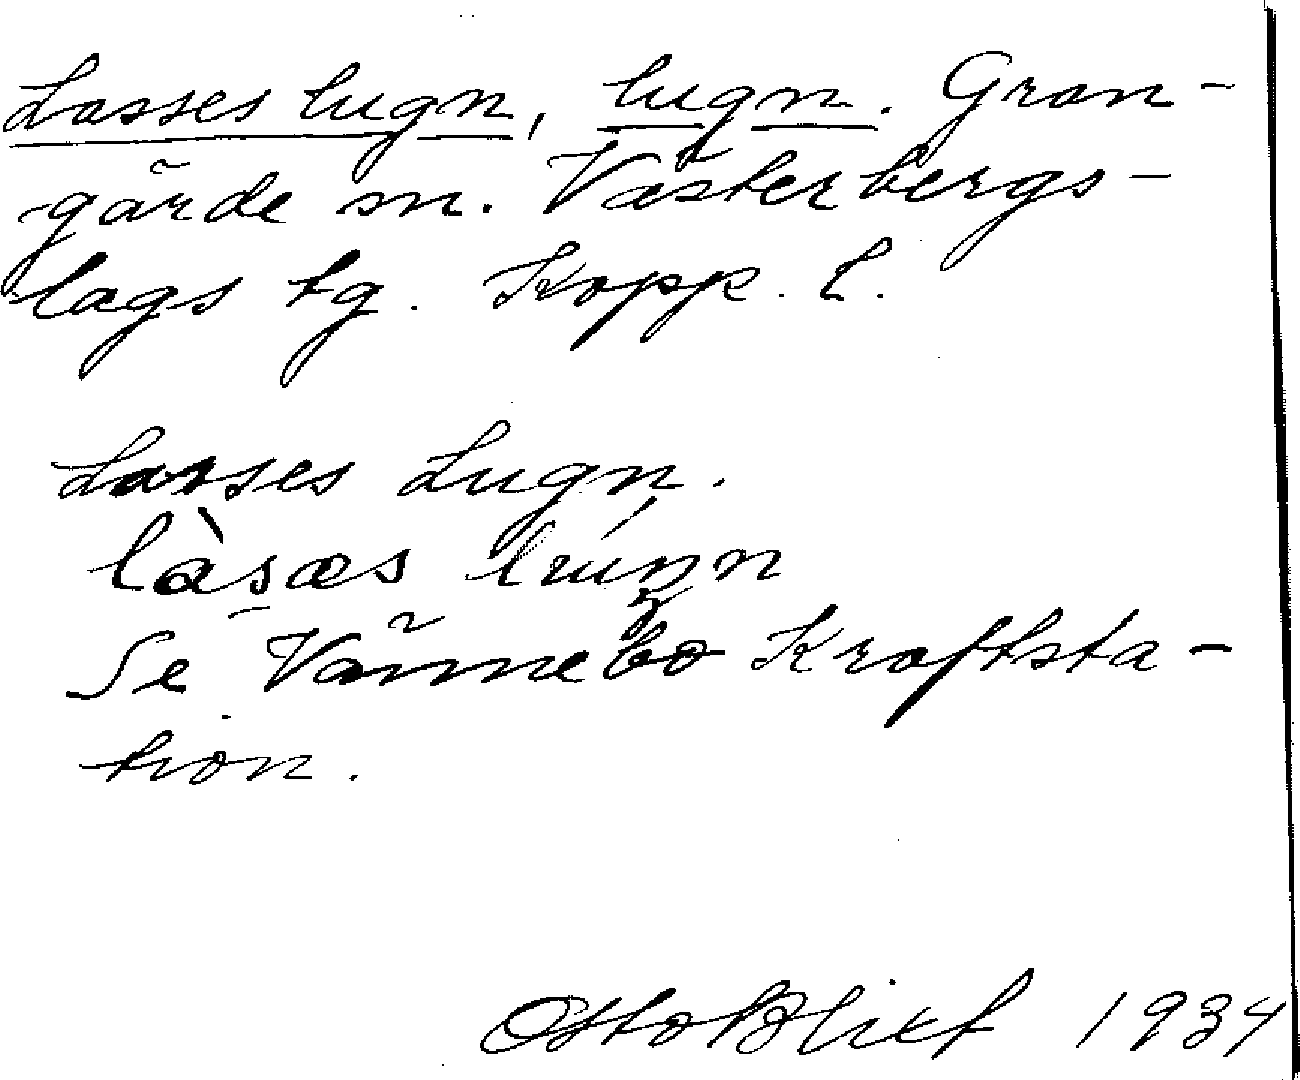 Lasses lugn, lugn. Gran-
gärde sn. Västerbergs-
lags tg. Kopp. l.
Lasses Lugn.
làsæs
Se Vännebo Kraftsta-
tion.
Otto Blixt 1934